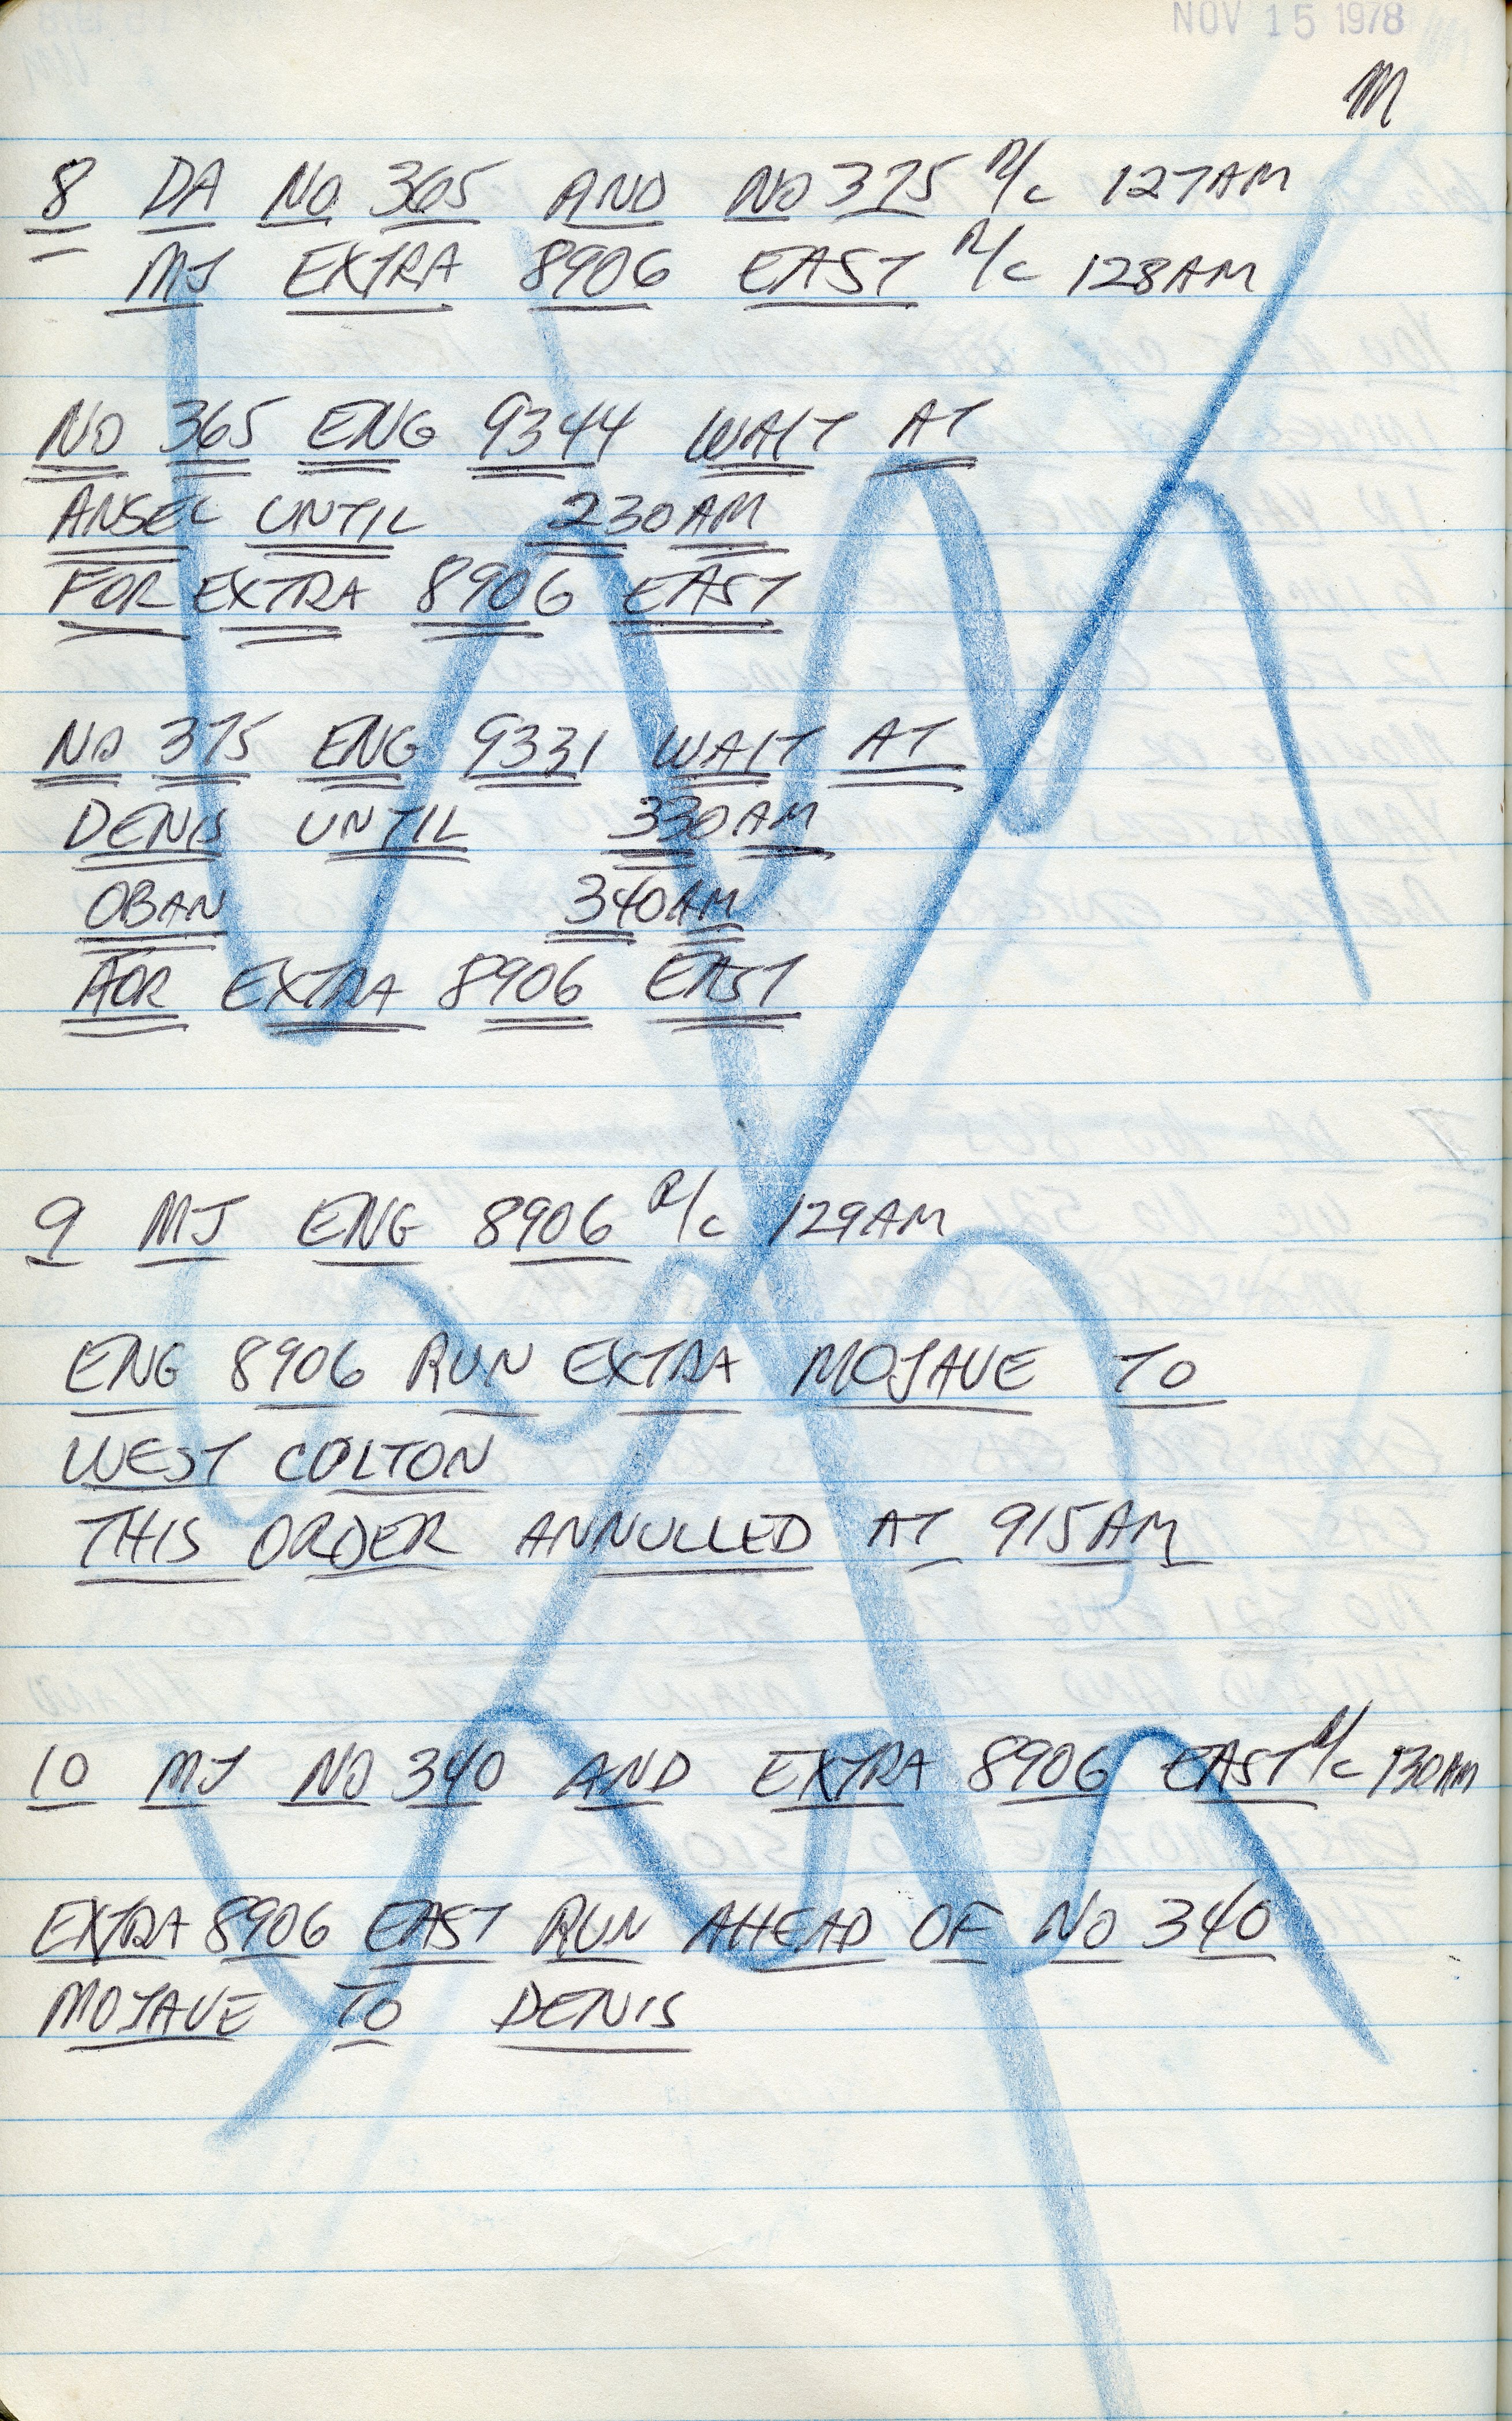 NOV 15 1978
M
8 DA NO 365 AND NO 375 R/C 127AM
MJ EXTRA 8906 EAST R/C 128AM
NO 365 ENG 9344 WAIT AT
ANSEL UNTIL 230AM
FOR EXTRA 8906 EAST
NO 375 ENG 9331 WAIT AT
DENIS UNTIL 330AM
OBAN 340AM
FOR EXTRA 8906 EAST
9 MJ ENG 8906 R/C 129AM
ENG 8906 RUN EXTRA MOJAVE TO
WEST COLTON
THIS ORDER ANNULLED AT 915AM
10 MJ NO 340 AND EXTRA 8906 EAST R/C 130AM
EXTRA 8906 EAST RUN AHEAD OF NO 340
MOJAVE TO DENIS